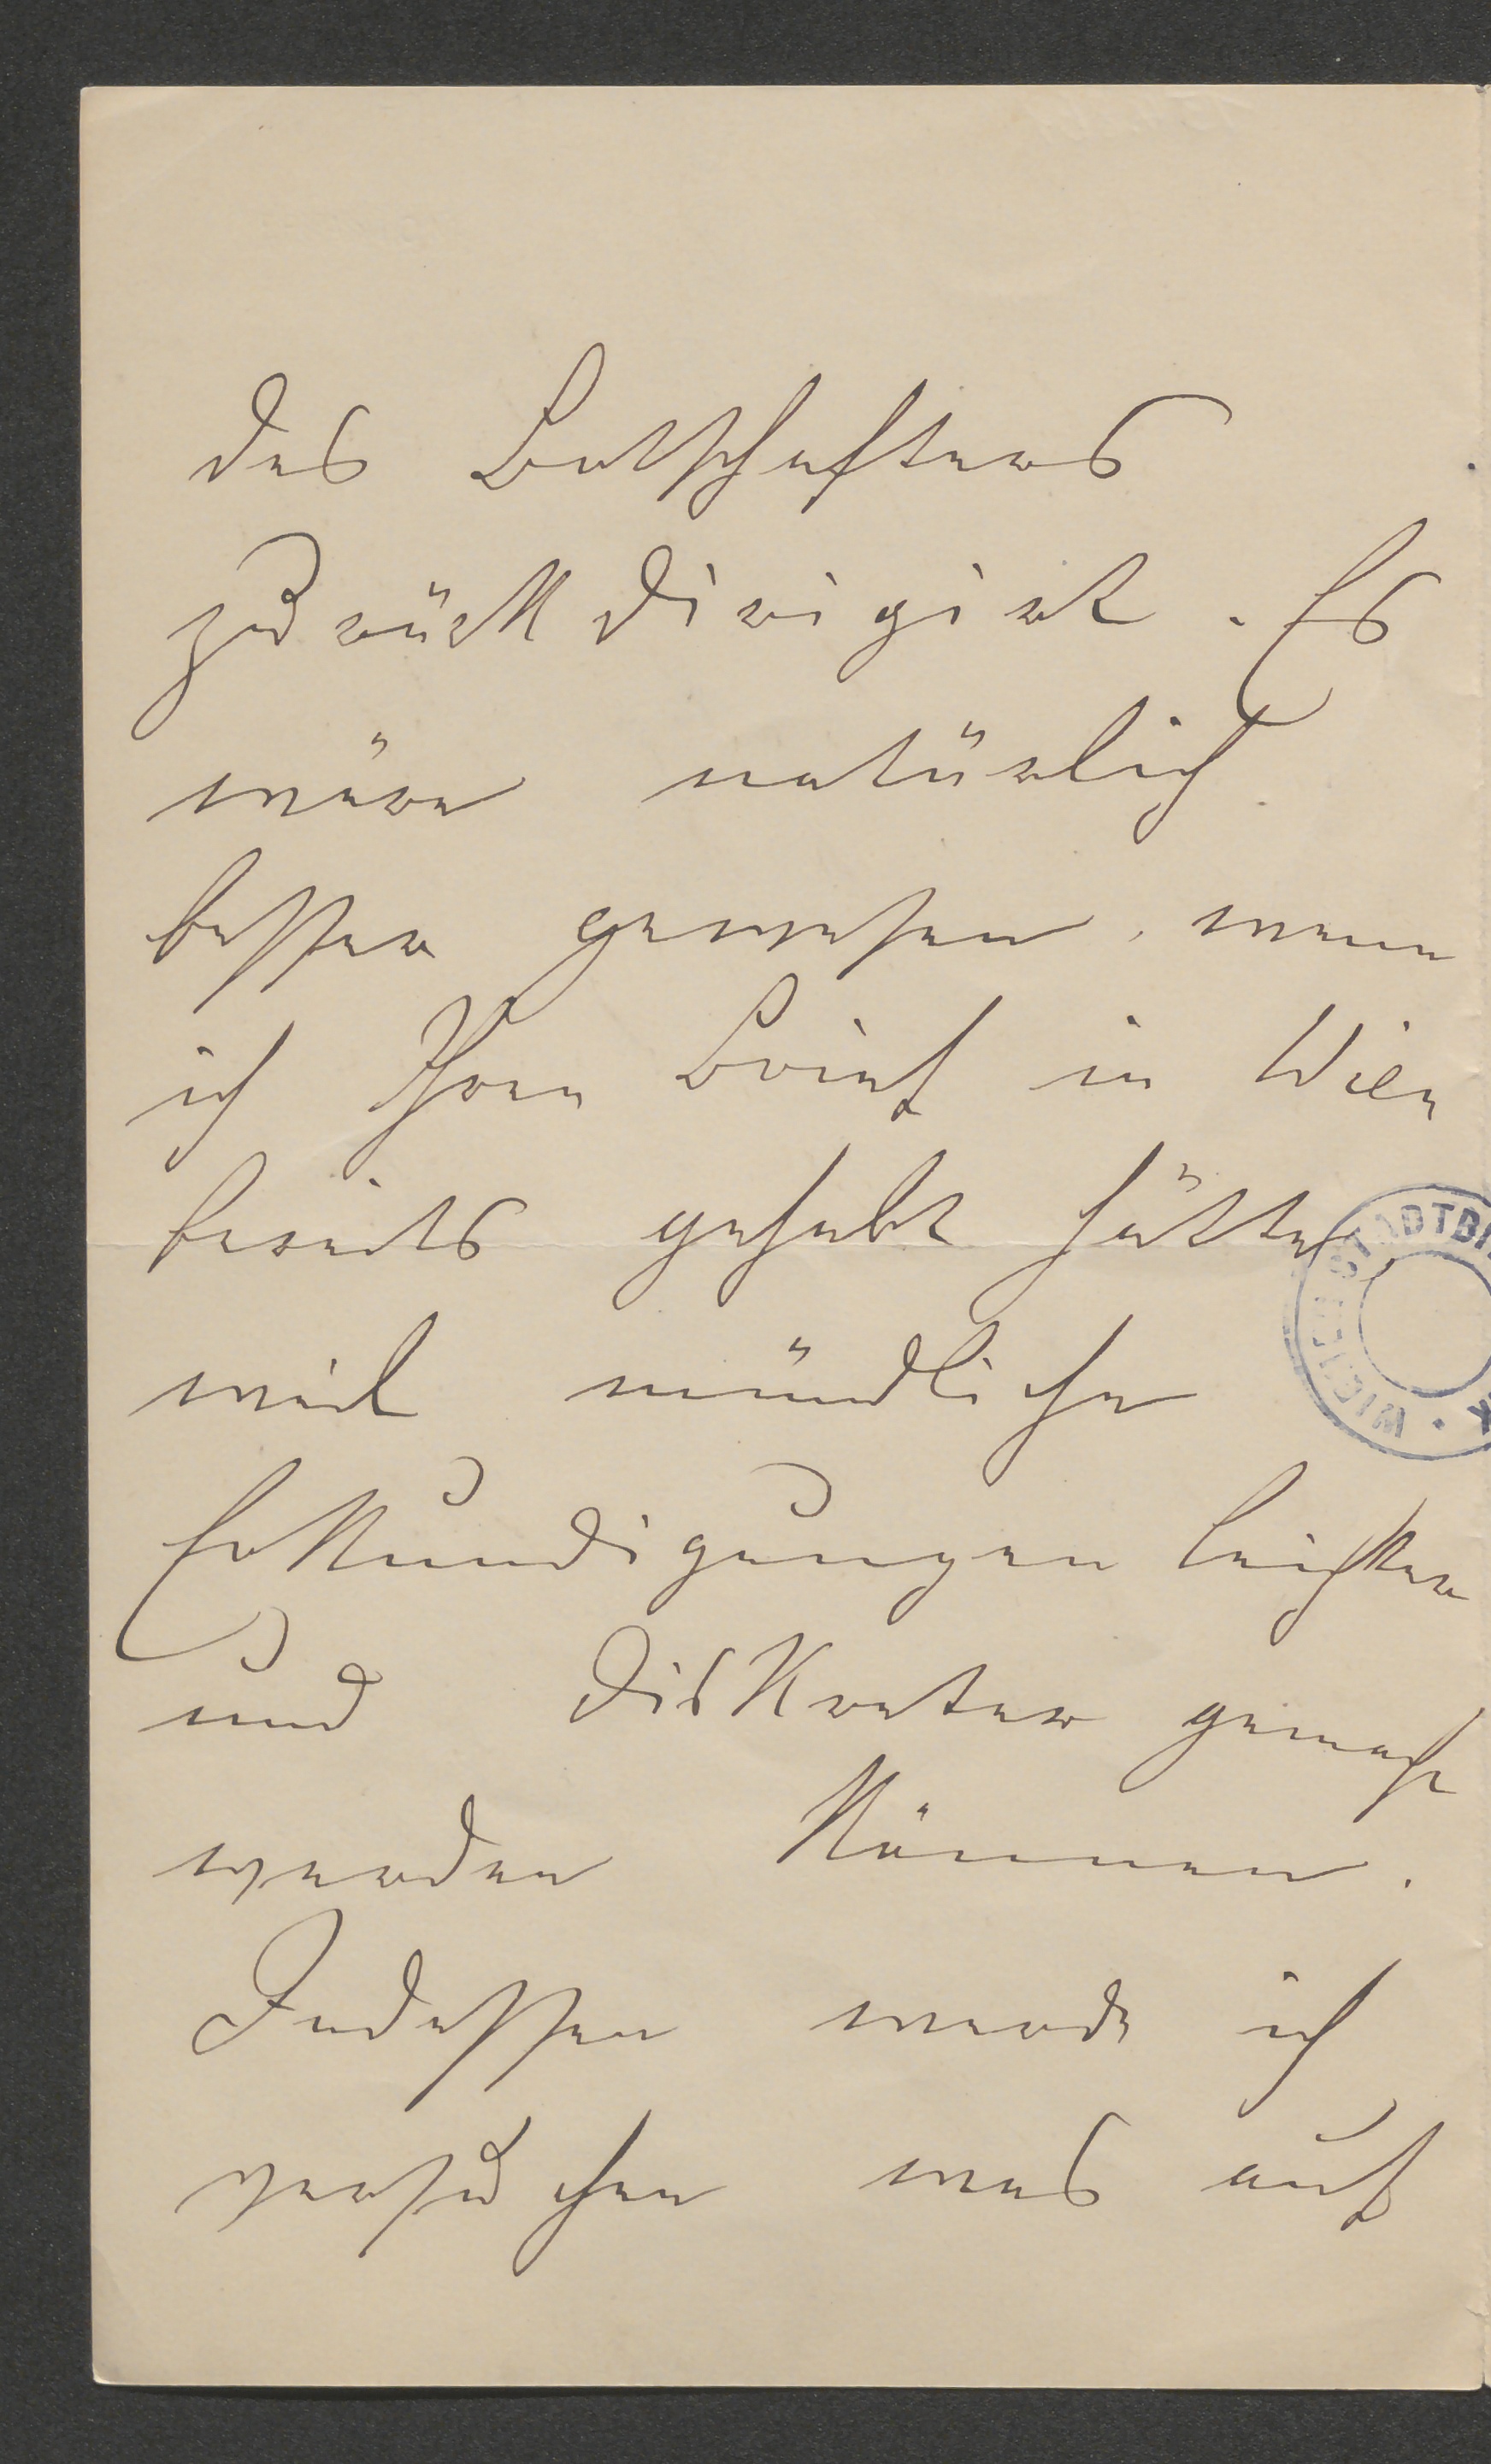 des Botschafters
zurückdirigirt. Es
wäre natürlich
besser gewesen, wenn
ich Ihren Brief in Wien
bereits gehabt hätte,
weil mündliche
Erkundigungen leichter
und diskreter gemacht
werden können.
Indessen werde ich
versuchen was auf
WIENER STADTBI
K